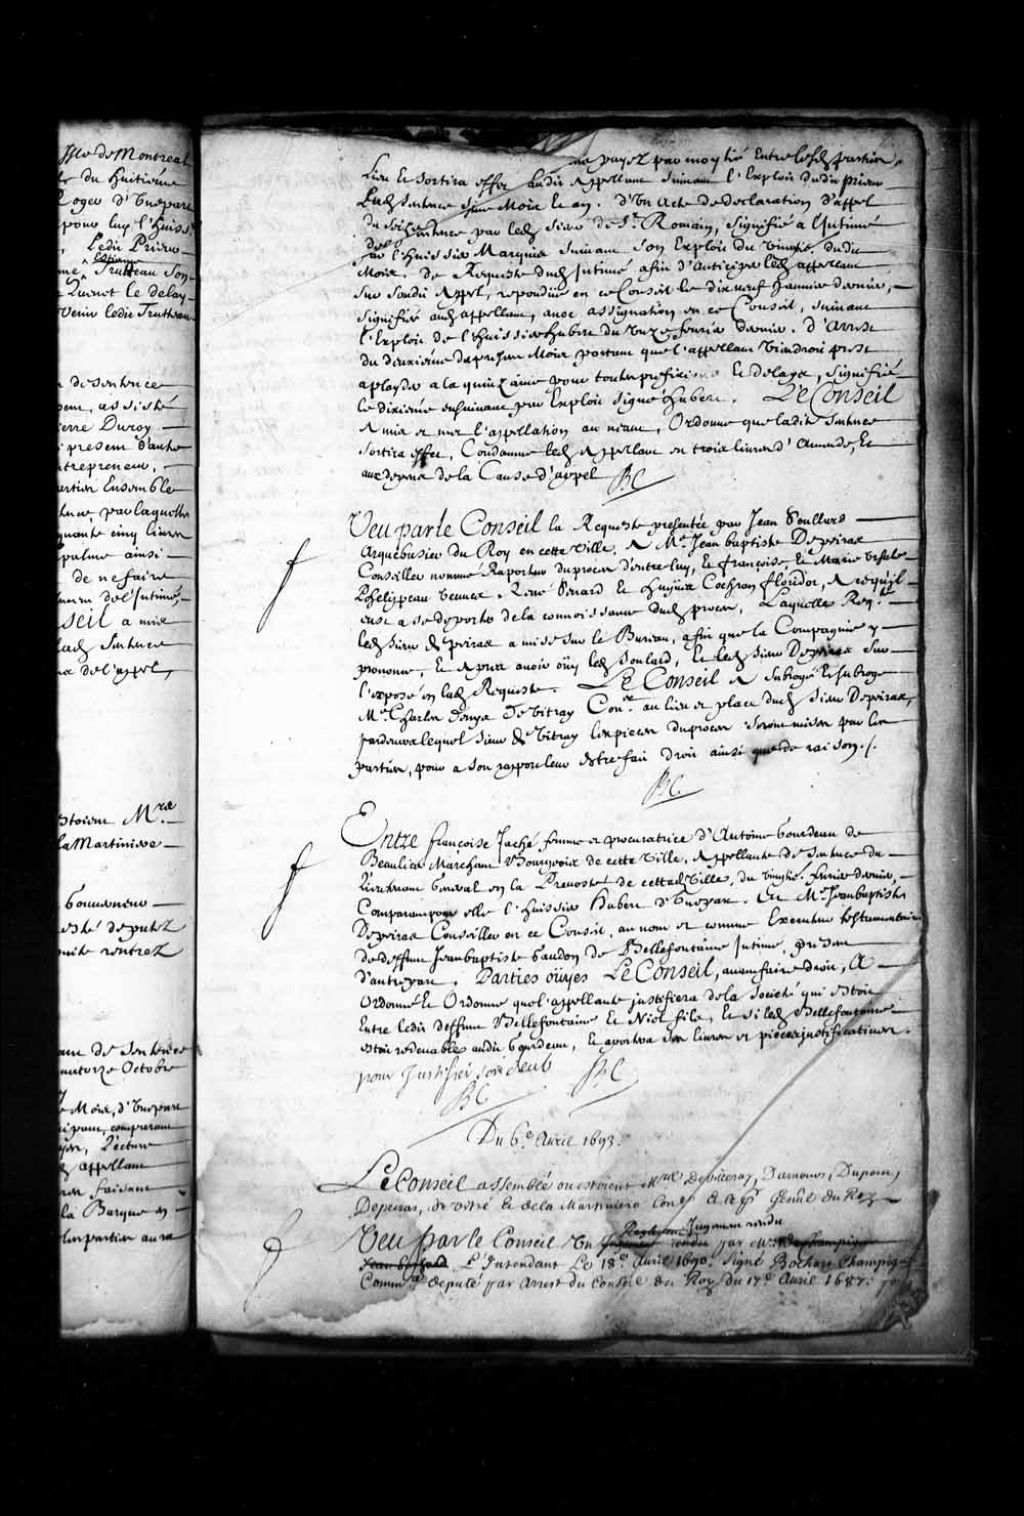 Isle de Montreal
du huitiéme
Roger d'Unepart
pour luy l'huiss.
Ledit Prieur
Trutteau son
Quenet le delay
Venir ledit Trutteau
de sentence
assisté
Pierre Duroy
present d'autre
entrepreneur,
partien Ensemble
par laquelle
quante cinq livres
ainsi
de ne faire
de l'Intimé,
seil a mis
lad. sentence
de l'appel,
estoient Mrs
la Martiniere
Gouverneur
esté deputez
rentrez
de sentence
quatorze Octobre
Mois, d'Unepart
comparant
Lecture
appellant
faisant
la Barque
les partien aura
payez par moytié Entre lesd. partien,
Lieu Et sortira effet audit Appellant suivant l'Exploit dudit prieur
Lad. sentence mois et an. d'Un Acte de declaration d'appel
de lad. sentence par led. sieur de St. Romain, signifié a l'Intimé
par l'huissier Marquis suivant son Exploit du vingt dudit
Mois. de Requeste dud. Intimé afin d'anticiper led. appellant
sur sondit appel, repondüe en ce Conseil le dixneuf Janvier dernier,
signifiée aud. appellant, avec assignation en ce Conseil, suivant
l'Exploit de l'huissier hubert du onze fevrier dernier. d'Arrest
du deuxiéme du present Mois portant que l'appellant viendroit prest
a playder a la quinzaine pour toutes prefixions Et delays, signifié
le dixiéme ensuivant par Exploit signé hubert. Le Conseil
A mis et met l'appellation au neant, Ordonne que ladite sentence
sortira effet, Condamne led. Appellant en trois livres d'Amende, Et
aux depens de la Cause d'appel BC
Veu par le Conseil la Requeste presentée par Jean Soullard
Arquebusier du Roy en cette ville, A Me. Jean baptiste Depeiras
Conseiller nommé Raporteur du procez d'entre luy, Et françoise Et Marie Ursule
Phelippeau veuves René Senard Et hugues Cochran floridor, A ce qu'il
eust a se deporter de la connoissance dud. procez, Laquelle Reqte.
led. sieur de peiras a mise sur le Bureau, afin que la Compagnie y
prononce, Et Apres avoir oüy led. Soulard, Et led. sieur Depeiras sur
l'exposé en lad. Requeste. Le Conseil A subrogé Et subroge
Me. Charles Denys De Vitray Coner. au lieu et place dud. sieur Depeiras,
pardevant lequel sieur de Vitray les pieces du procez seront mises par les
partien, pour a son rapport leur estre fait droit ainsi que de raison./.
BC.
Entre françoise Zaché femme et procuratrice d'Antoine Gourdeau de
Beaulieu Marchant Bourgeois de cette ville, Appellante de sentence du
Lieutenant General en la Prevosté de cetted. Ville, du vingte. fevrier dernier,
Comparant pour elle l'huissier hubert d'Unepart. Et Me. Jean baptiste
Depeiras Conseiller en ce Conseil, au nom et comme Executeur testamentaire
de deffunt Jean baptiste Gaudon de Bellefontaine Intimé, present
d'autrepart. Parties oüyes Le Conseil, avant faire droit, A
Ordonné Et Ordonne que l'appellante justifiera de la Societé qui estoit
Entre ledit deffunt Bellefontaine Et Niel fils, Et si led. Bellefontaine
estoit redevable audit Gourdeau, Et aportera ses livres et pieces justificatives
pour Justifier son deub BC
BC
Du 6e. Avril 1693.
Le Conseil assemblé ou estoient Mrs de Villeray, Damours, Dupont,
Depeiras, de vitré Et de la Martiniere Coners & le pr. general du Roy
Veu par le Conseil Un Jugement rendu par Mr de champigny
L'Intendant Le 18e. Avril 1690. Signé Bochart Champigny
Commre deputé par Arrest du Conseil du Roy du 17e. Avril 1687.